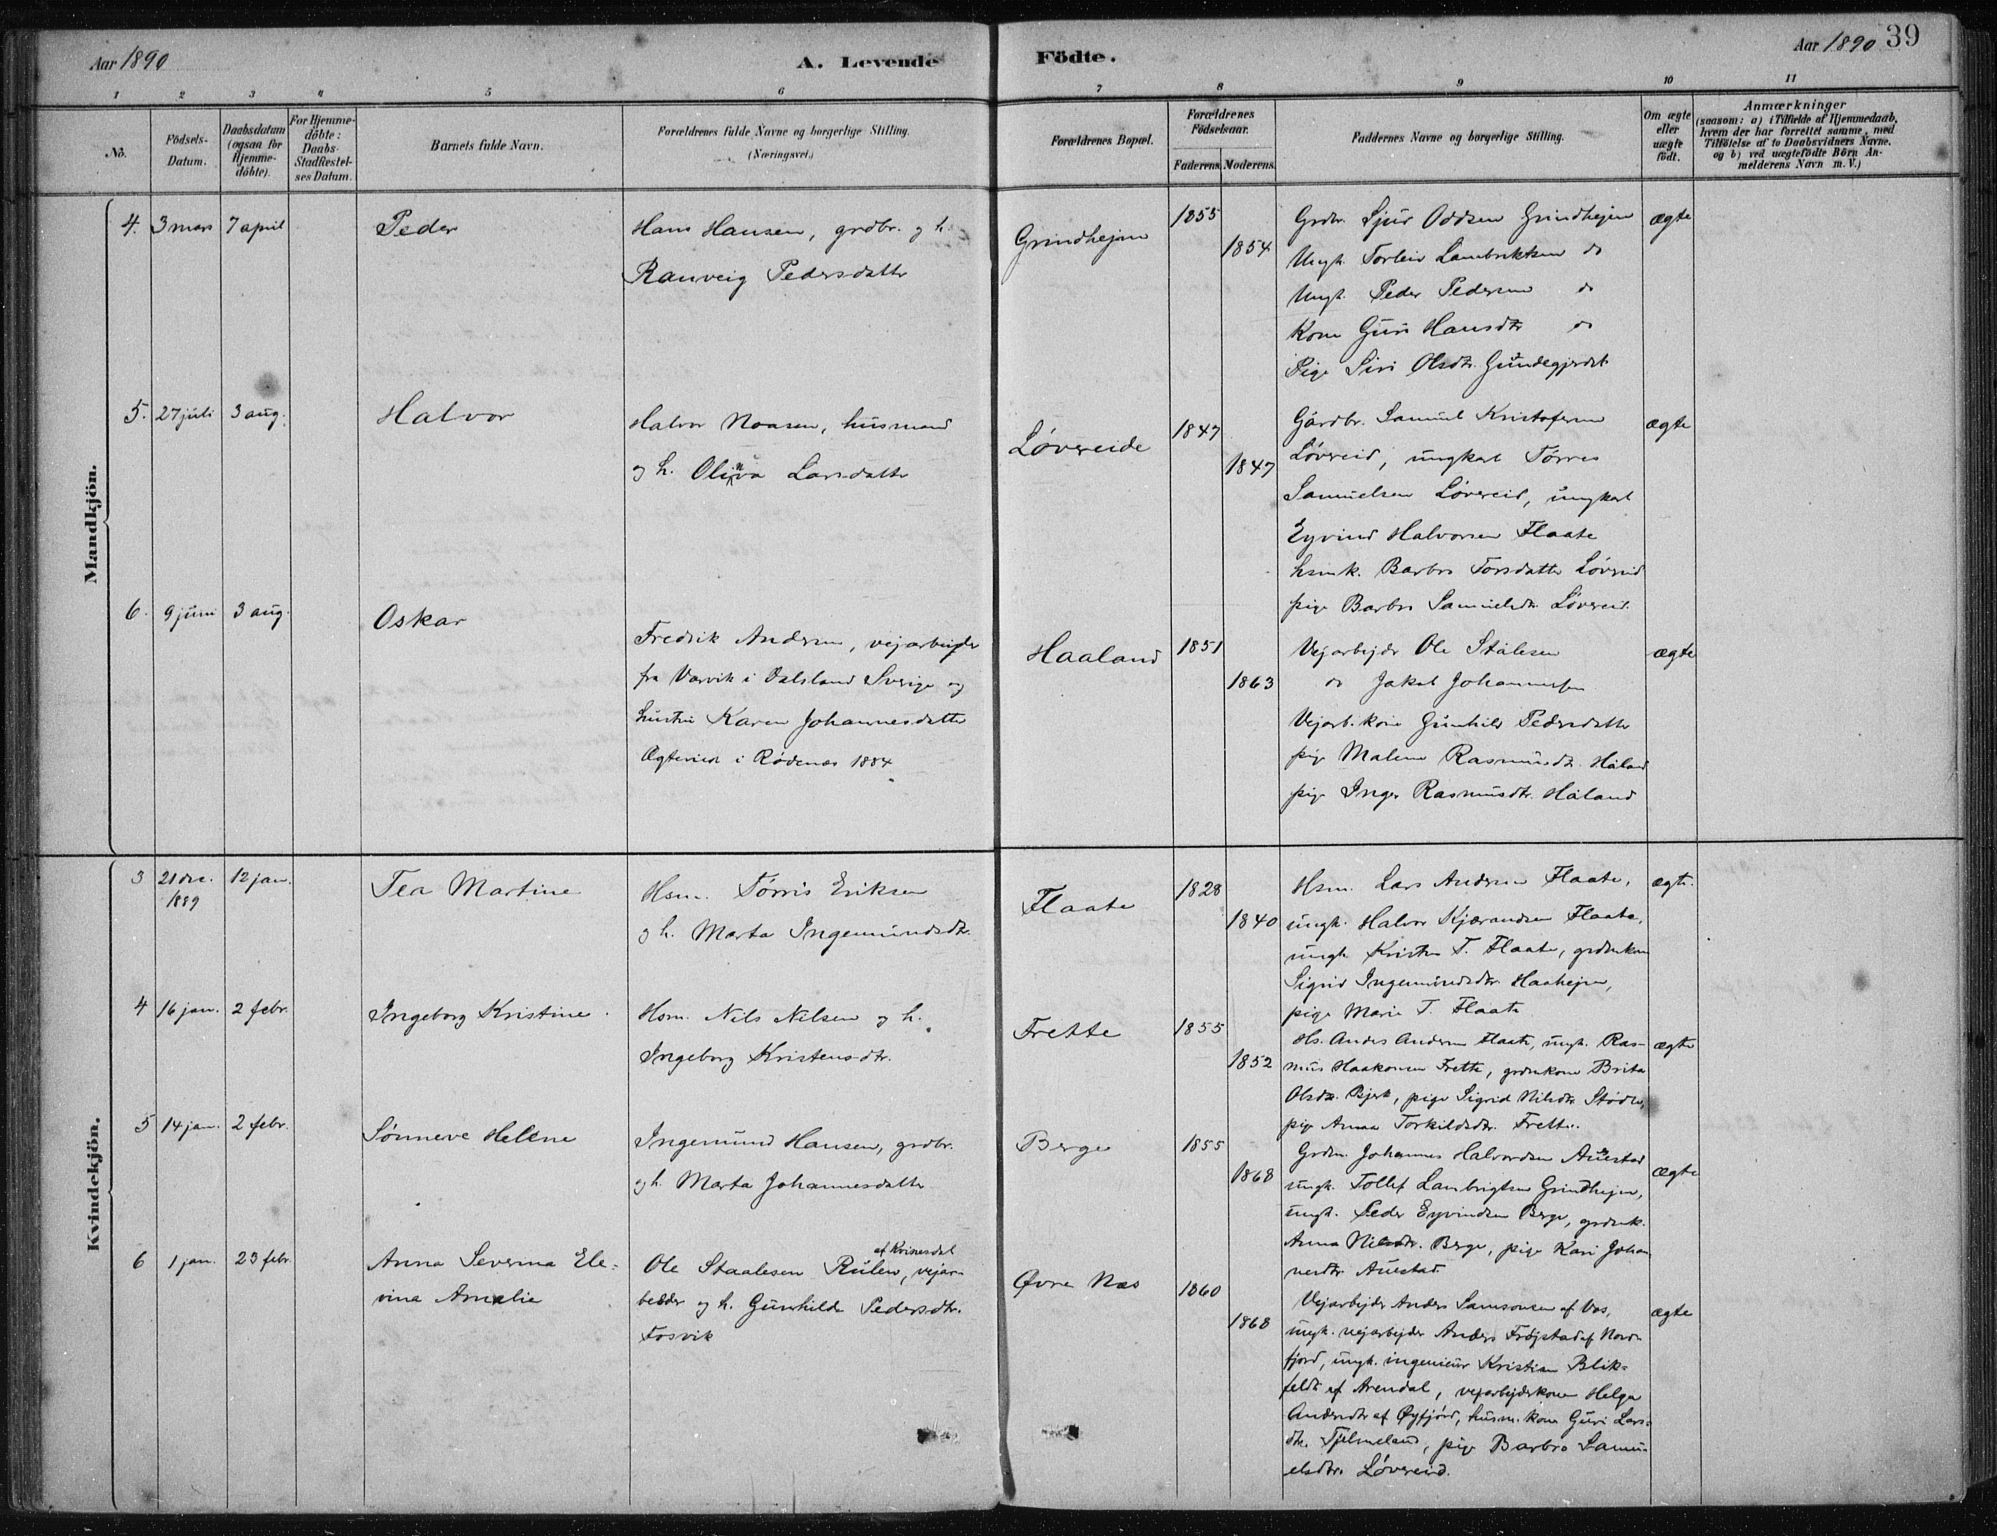 Aar 1890
A. Levende
Födte.
Aar 1890
39
1
2
3
4
5
6
7
8
9
10
11
No.
Födsels-
Datum.
Daabsdatum
(ogsaa for
Hjemme-
döbte).
For Hjemme-
döbte:
Daabs-
Stadfæstel-
ses Datum.
Barnets fulde Navn.
Forældrenes fulde Navne og borgerlige Stilling.
(Næringsvei.)
Forældrenes Bopæl.
Forældrenes
Födselsaar.
Faderens.
Moderens.
Faddernes Navne og borgerlige Stilling.
Om ægte
eller
uægte
födt.
Anmærkninger
(saasom: a) i Tilfælde af Hjemmedaab,
hvem der har forrettet samme, med
Tilföielse af to Daabsvidners Navne,
og b) ved uægtefödte Börn An-
melderens Navn m. V.)
Mandkjön.
4.
3 mars
7 april
Peder
Hans Hansen, grdbr. og h.
Ranveig Pedersdatter
Grindhejm
1855
1854
Grdbr. Sjur Oddsen Grindhejm
Ungk. Torleiv Lambriktsen do
Ungk. Peder Pedersen do
Kone Guri Hansdtr do
Pige Siri Olsdtr.
ægte
5.
27 juli
3 aug.
Halvor
Halvor Noasen, husmand
og h. Olina Larsdatter
Løvereide
1847
1847
Gårdbr. Samuel Kristofersen
Løvereid, ungkarl Tørres
Samuelsen Løvereid, ungkarl
Eyvind Halvorsen Flaate
hsmk. Barbro Torsdatter Løvreid
pige Barbro Samuelsdtr. Løvereid.
ægte
6.
9 juni
3 aug.
Oskar
Fredrik Andersen, vejarbejder
fra Værvik i Dalsland Sverige og
hustru Karen Johannesdatter
Ægteviet i Rødenæs 1884
Haaland
1851
1863
Vejarbejder Ole Stålesen
do Jakob Johannessen
Vejarb. kone Gunhild Pedersdatter
pige Malene Rasmusdtr. Håland
pige Inger Rasmusdtr. Håland
ægte
Kvindekjön.
3
21 dec.
1889
12 jan.
Tea Martine
Hsm. Tørris Eriksen
og h. Marta Ingemundsdtr.
Flaate
1828
1840
Hsm. Lars Andersen Flaate,
ungk. Halvor Kjærandsen Flaate,
ungk. Kristen T. Flaate, grdmkone
Sigrid Ingemundsdtr. Haahejm,
pige Marie T. Flaate
ægte.
4
16 jan.
2 febr.
Ingeborg Kristine.
Hsm. Nils Nilsen og h.
Ingeborg Kristensdtr.
Frette
1855
1852
Hs. Anders Andersen Flaate, ungk. Ras-
mus Haakonsen Frette, grdmkone Brita
Olsdtr. Bjerk, pige Sigrid Nilsdtr. Stødle,
pige Anna Torkildsdtr. Frette.
ægte
5
14 jan.
2 febr.
Sønneve Helene
Ingemund Hansen, grdbr.
og h. Marta Johannesdatter
Berge
1855
1868
Grdm. Johannes Halvordsen Austad
ungk. Tollef Lambrigtsen Grindhejm,
ungk. Peder Eyvindsen Berge, grdmk.
Anna Nilsdtr. Berge, pige Kari Johan
nesdtr. Austad.
ægte
6
1 jan.
23 febr.
Anna Severina Ele-
vina Amalie
af Kvinesdal
Ole Staalesen Rulen, vejar-
beider og h. Gunhilde Pedersdtr.
Fosvik
Øvre Næs
1860
1868
Vejarbejder Anders Samsonsen af Vos,
ungk. vejarbejder Anders Frøjstad af Nord-
fjord, ungk. ingeniør Kristian Blik-
feldt af Arendal, vejarbejderkone Helga
Andersdtr af Øyfjord, husm. kone Guri Lars-
dtr. Tjelmeland, pige Barbro Samu-
elsdtr. Løvereid.
ægte